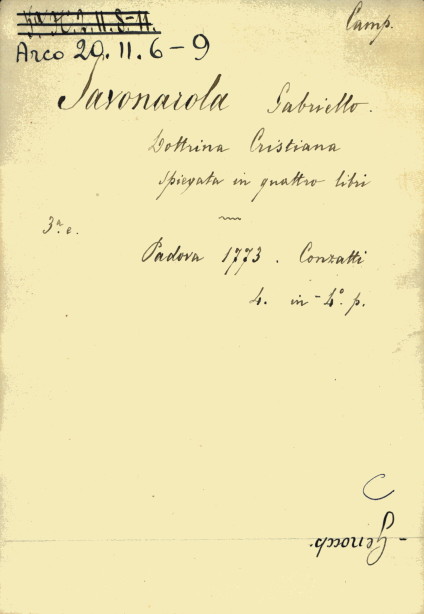 Camp.
Arco 29.11.6-9
Savonarola Gabriello.
Dottrina Cristiana
spiegata in quattro libri
3ª e.
Padova 1773. Conzatti
4. in-4º. p.
C